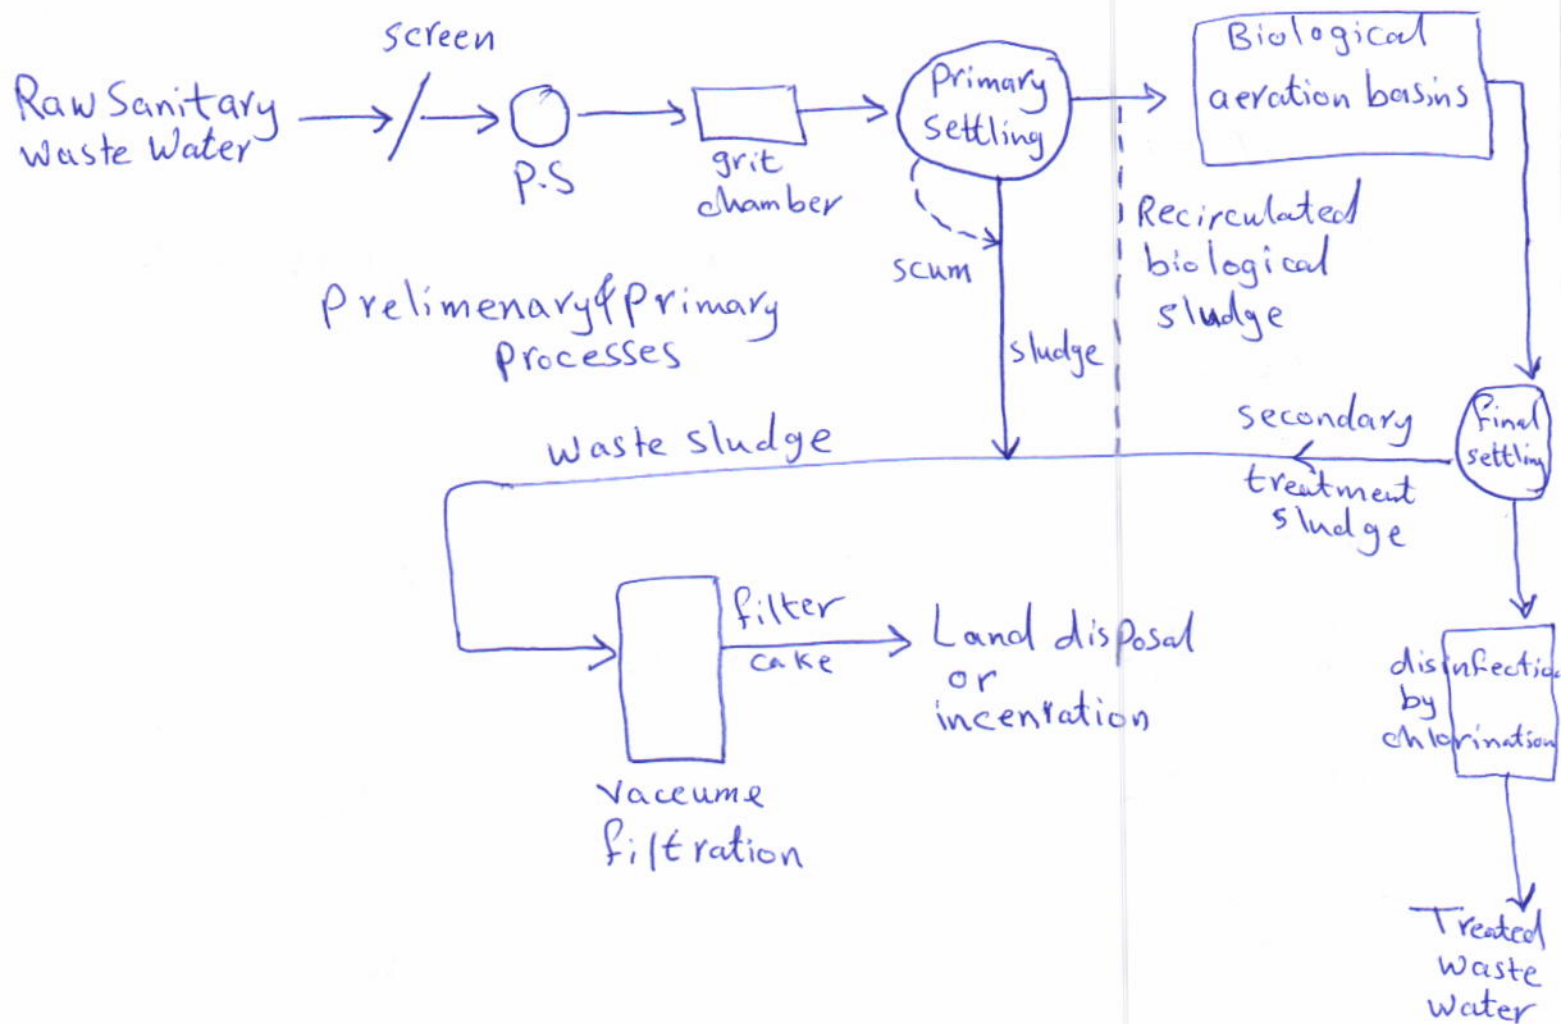 screen
Raw Sanitary
waste water
P.S
grit
chamber
Primary
settling
Biological
aeration basins
scum
sludge
Recirculated
biological
sludge
Prelimenary & Primary
Processes
waste sludge
secondary
treatment
sludge
Final
settling
filter
cake
Land disposal
or
incenration
Vaceume
filtration
disinfection
by
chlorination
Treated
waste
water